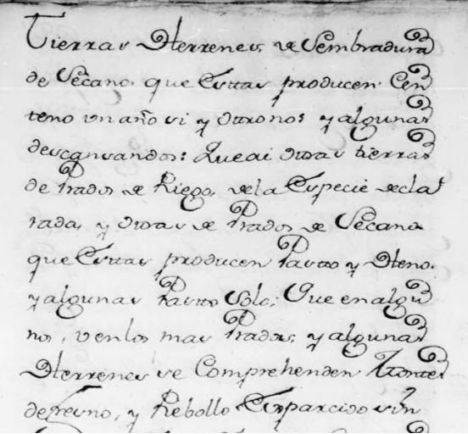 Tierras Yterrenes, de Sembradura
de Secano que Estas producen Cen
teno un año si y otro no: y algunas
descansandos: Que ai otras tierras
de Prados de Riego, dela Especie decla
rada, y otras de Prados de Secano
que Estas producen Pasto y Yeno.
y algunas Pasto Solo; Que en algu
no, venlos mas Prados, y algunas
Yterrenes se Comprehenden Montes
defresno, y Rebollo Esparcido sin